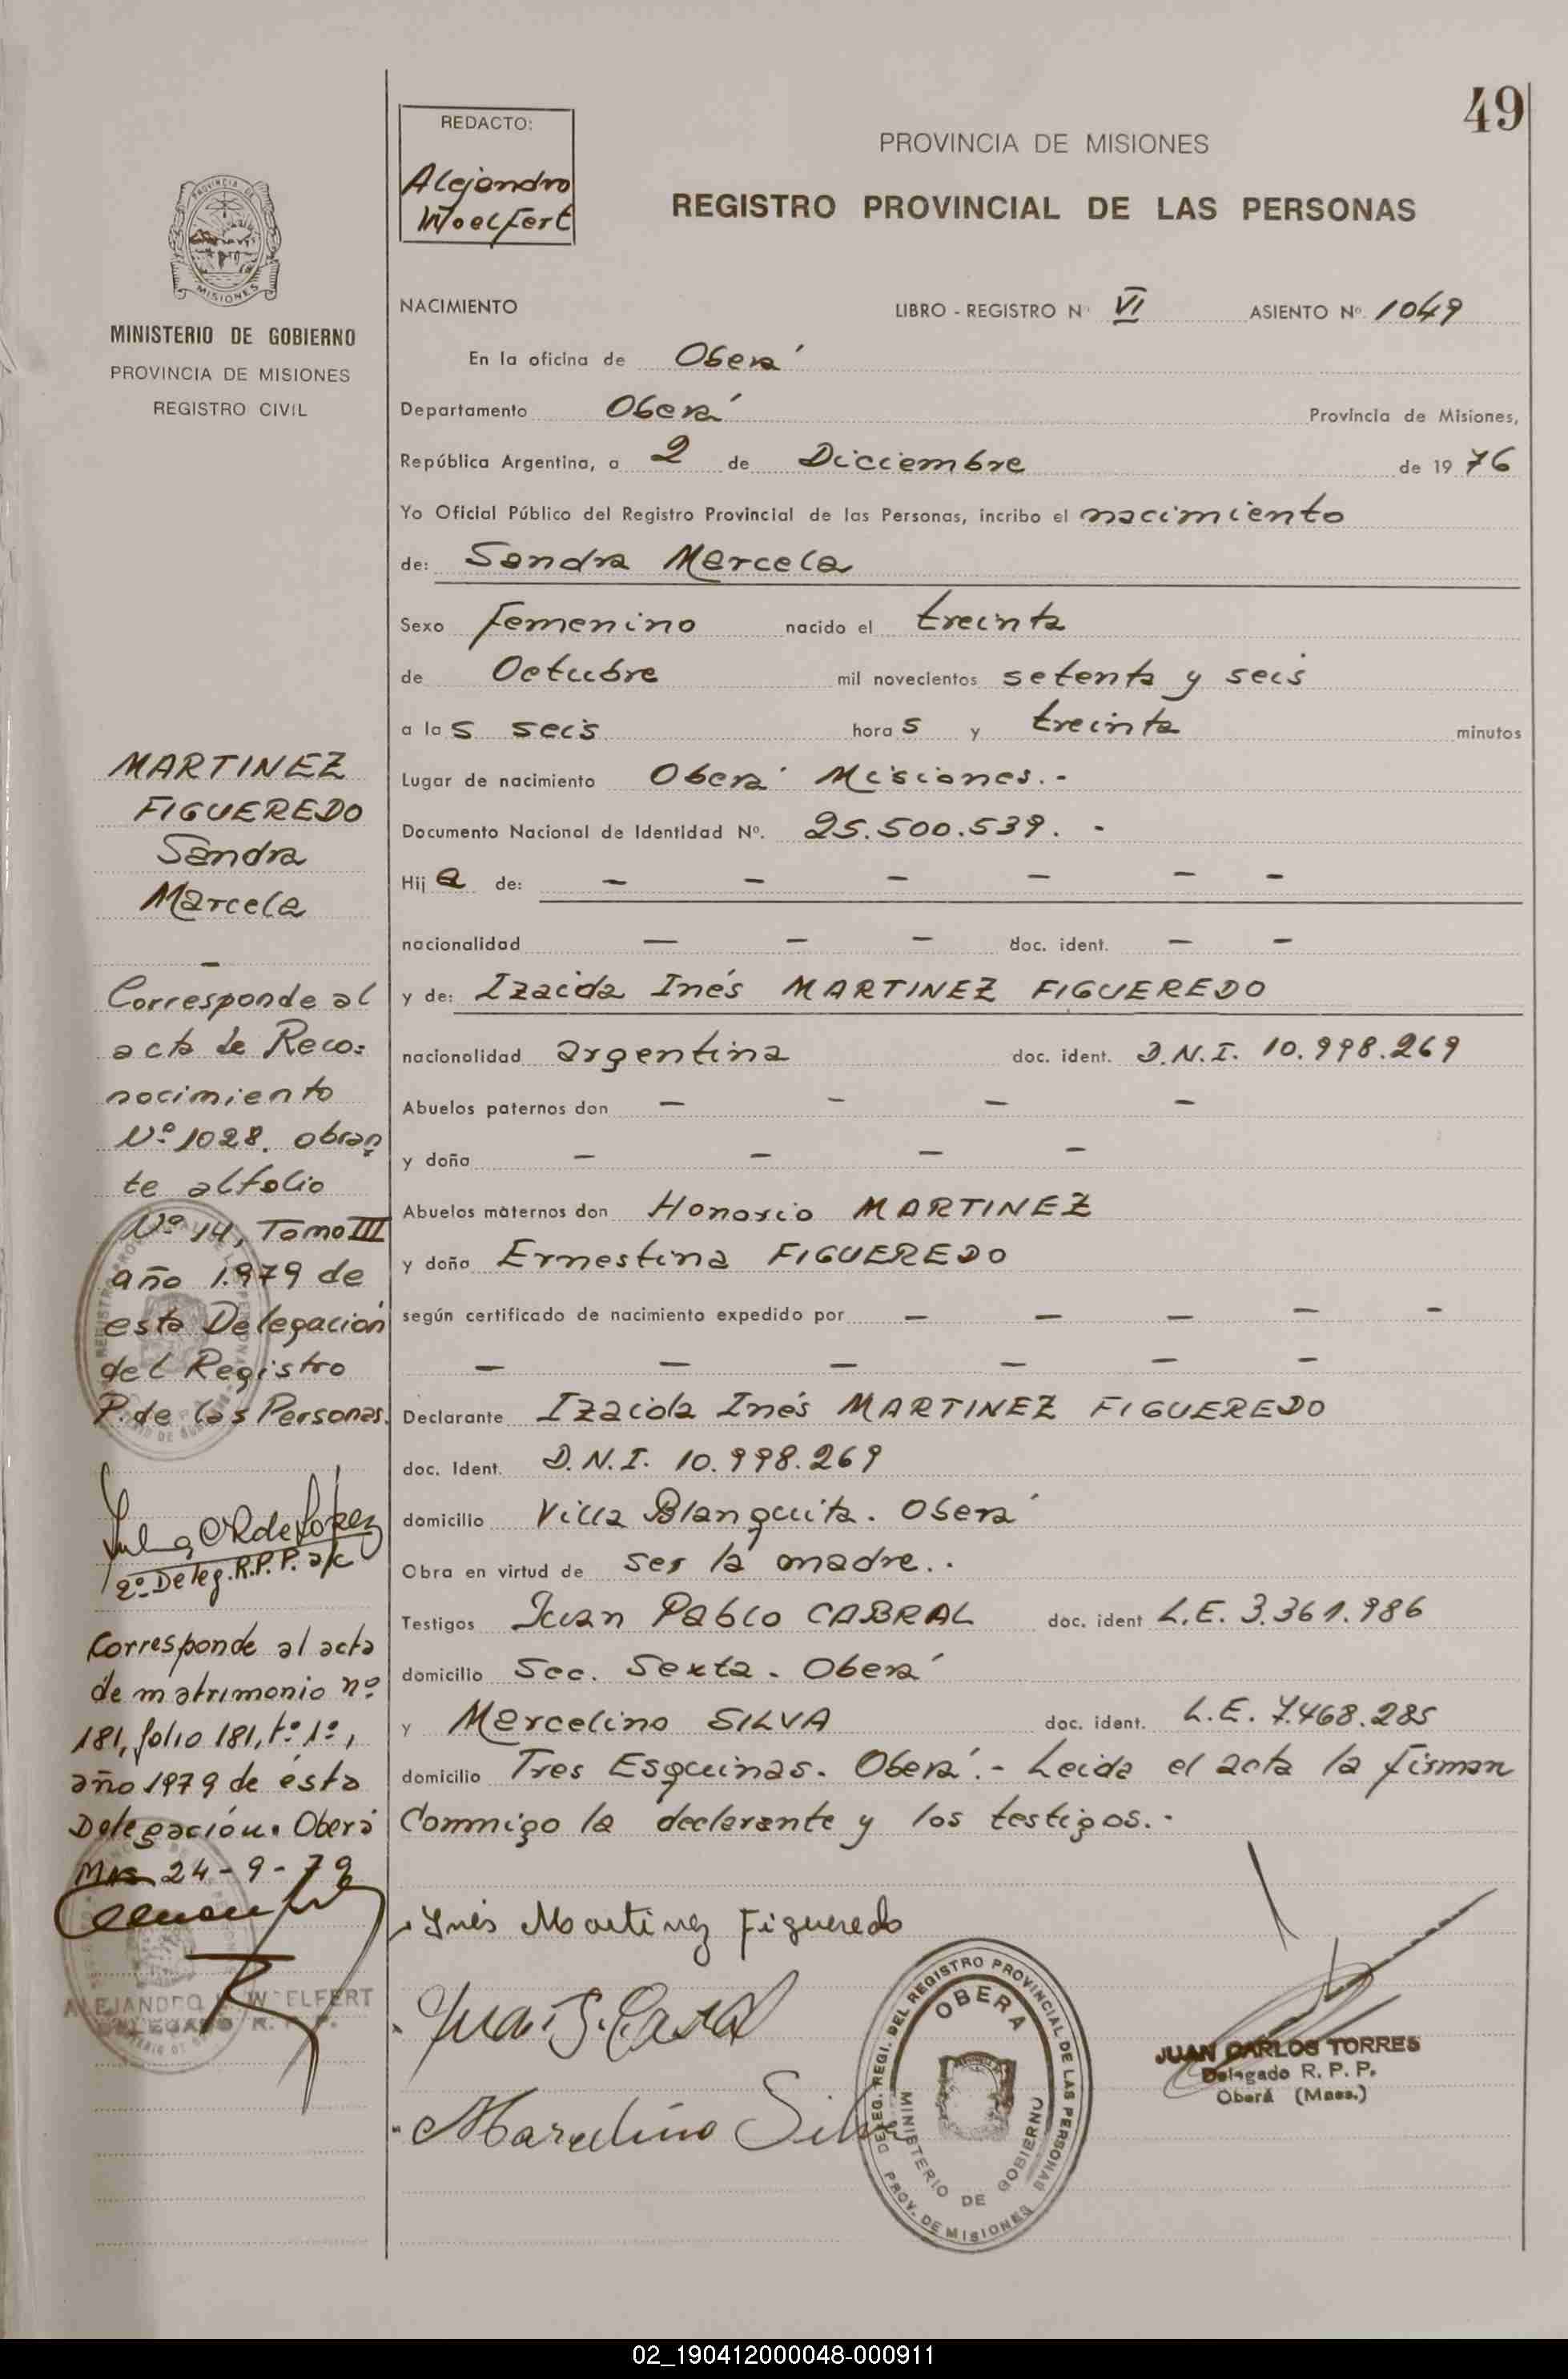 49
REDACTO:
Alejandro
Woelfert
PROVINCIA DE MISIONES
REGISTRO PROVINCIAL DE LAS PERSONAS
PROVINCIA DE
MISIONES
MINISTERIO DE GOBIERNO
PROVINCIA DE MISIONES
REGISTRO CIVIL
NACIMIENTO LIBRO - REGISTRO Nº VI ASIENTO Nº 1049
En la oficina de Oberá
Departamento Oberá Provincia de Misiones,
República Argentina, a 2 de Diciembre de 19 76
Yo Oficial Público del Registro Provincial de las Personas, incribo el nacimiento
de: Sandra Marcela
Sexo femenino nacido el treinta
de Octubre mil novecientos setenta y seis
a las seis horas y treinta minutos
Lugar de nacimiento Oberá Misiones.-
Documento Nacional de Identidad Nº. 25.500.539. -
Hija de: - - - - - -
nacionalidad - - - doc. ident. - -
y de: Izaida Inés MARTINEZ FIGUEREDO
nacionalidad argentina doc. ident. D.N.I. 10.998.269
Abuelos paternos don - - - -
y doña - - - -
Abuelos maternos don Honorio MARTINEZ
y doña Ernestina FIGUEREDO
según certificado de nacimiento expedido por - - - - -
- - - - - -
Declarante Izaida Inés MARTINEZ FIGUEREDO
doc. Ident. D.N.I. 10.998.269
domicilio Villa Blanquita. Oberá
Obra en virtud de ser la madre..
Testigos Juan Pablo CABRAL doc. ident L.E. 3.361.986
domicilio Sec. Sexta. Oberá
y Marcelino SILVA doc. ident. L.E. 7.468.285
domicilio Tres Esquinas. Oberá.- Leida el acta la firman
Conmigo la declarante y los testigos.-
Inés Martinez Figueredo
Marcelino Silva
DELEG. REGI. DEL REGISTRO PROVINCIAL DE LAS PERSONAS
OBERA
MINISTERIO DE GOBIERNO
PROV. DE MISIONES
JUAN CARLOS TORRES
Delegado R. P. P.
Oberá (Mnes.)
MARTINEZ
FIGUEREDO
Sandra
Marcela
-
Corresponde al
acta de Reco-
nocimiento
Nº 1028. obran
te al folio
Nº 14, Tomo III
año 1.979 de
esta Delegación
del Registro
P. de las Personas.
de López
2º Deleg. R.P.P. a/c
Corresponde al acta
de matrimonio nº
181, folio 181, tº 1º,
año 1979 de ésta
Delegación. Oberá
Mnes 24-9-79
ALEJANDRO WOELFERT
DELEGADO R. P. P.
02_190412000048-000911